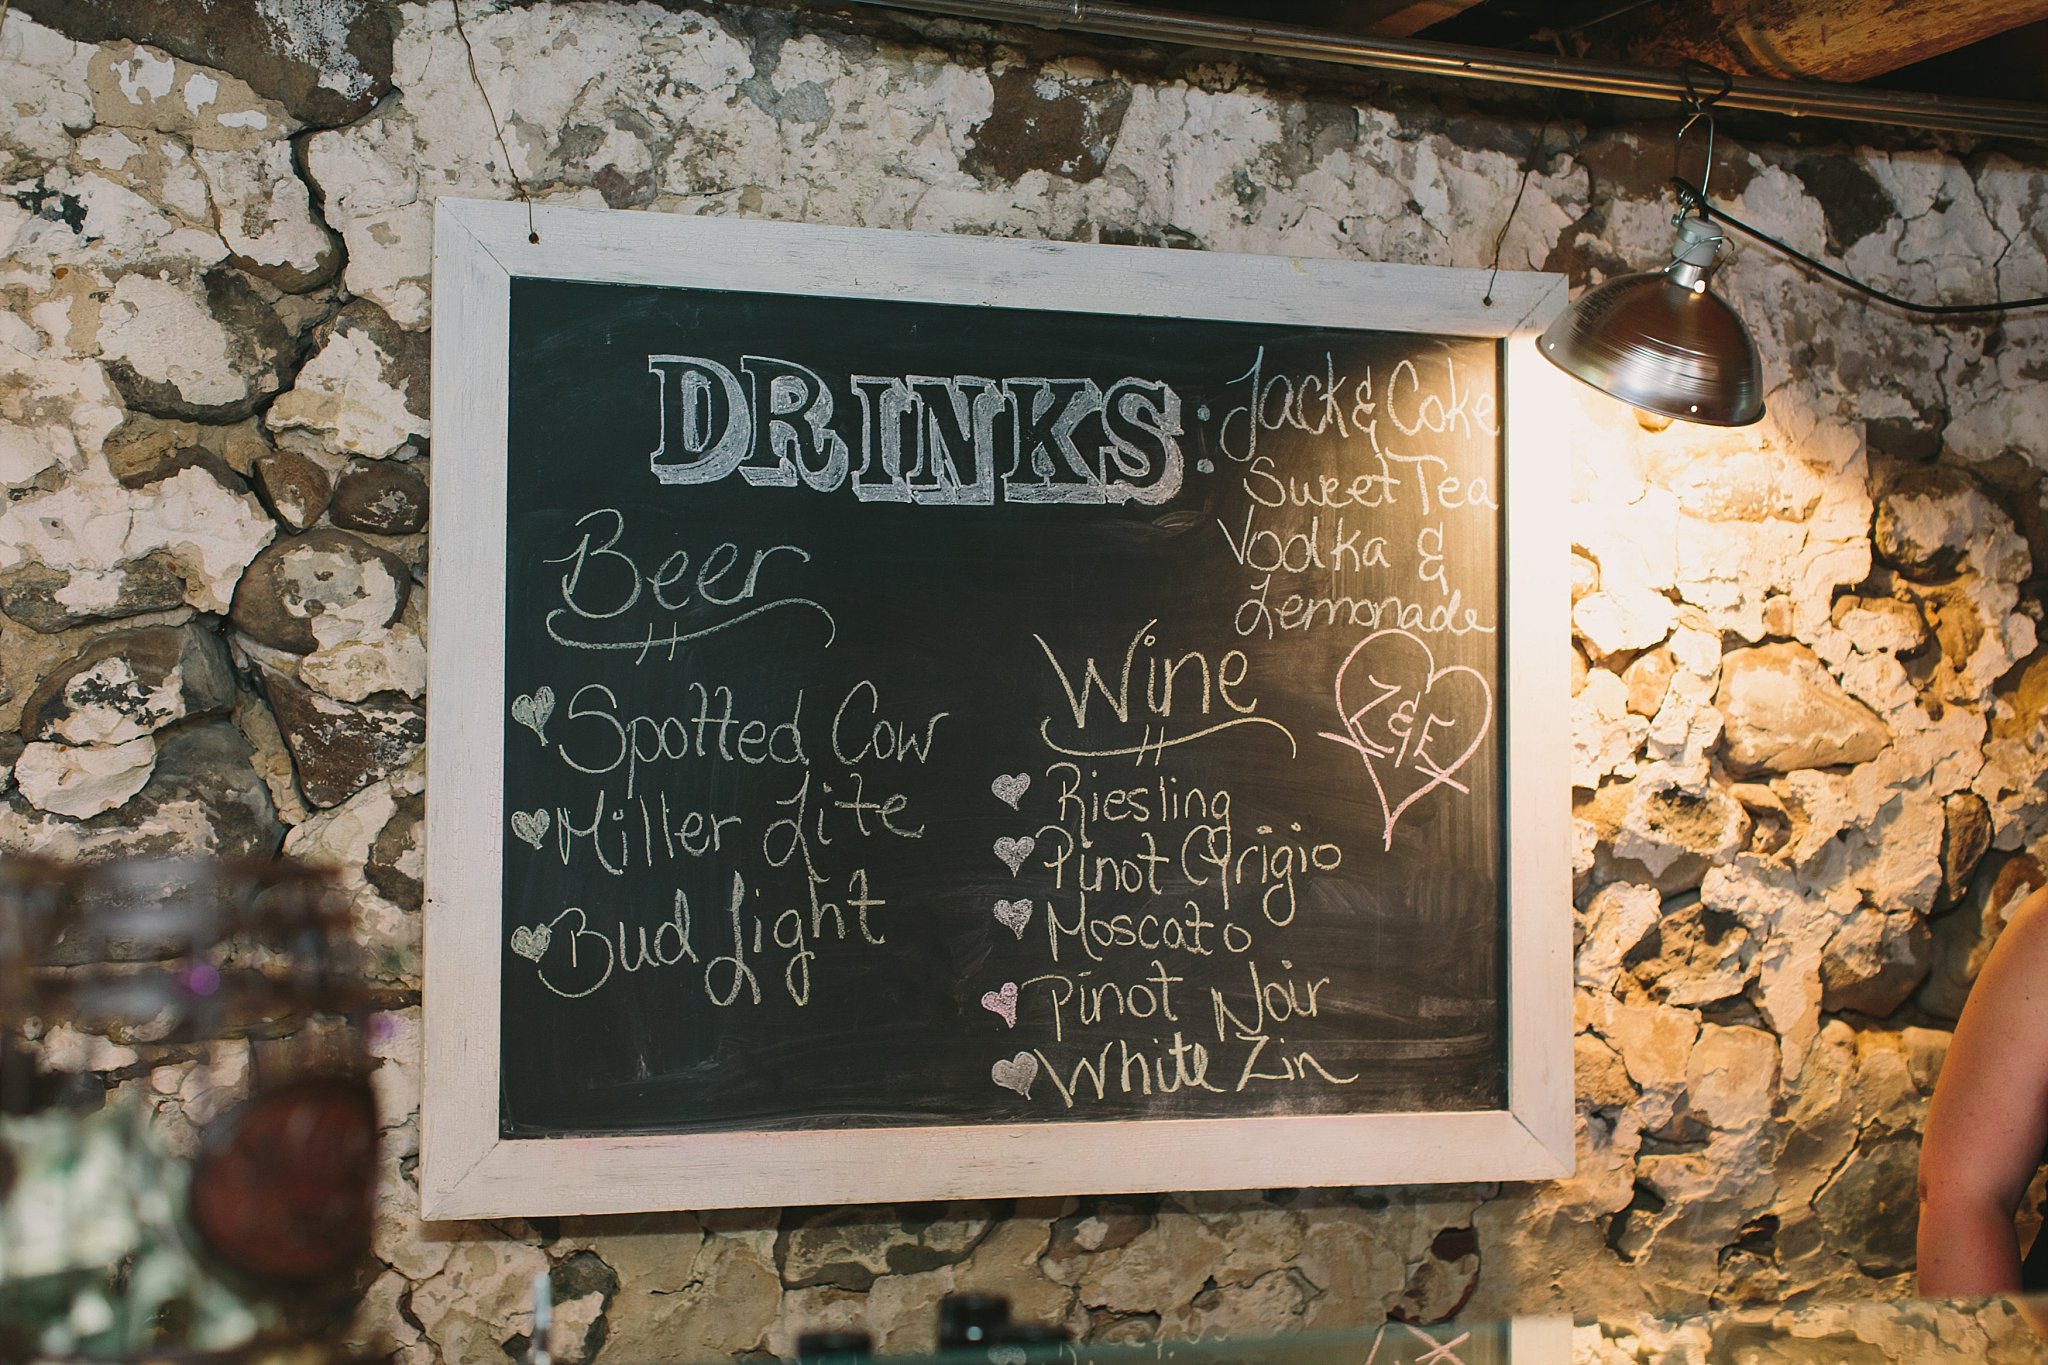 DRINKS:
Jack & Coke
Sweet Tea
Vodka &
Lemonade
Beer
Spotted Cow
Miller Lite
Bud Light
Wine
Riesling
Pinot Grigio
Moscato
Pinot Noir
White Zin
Z & E